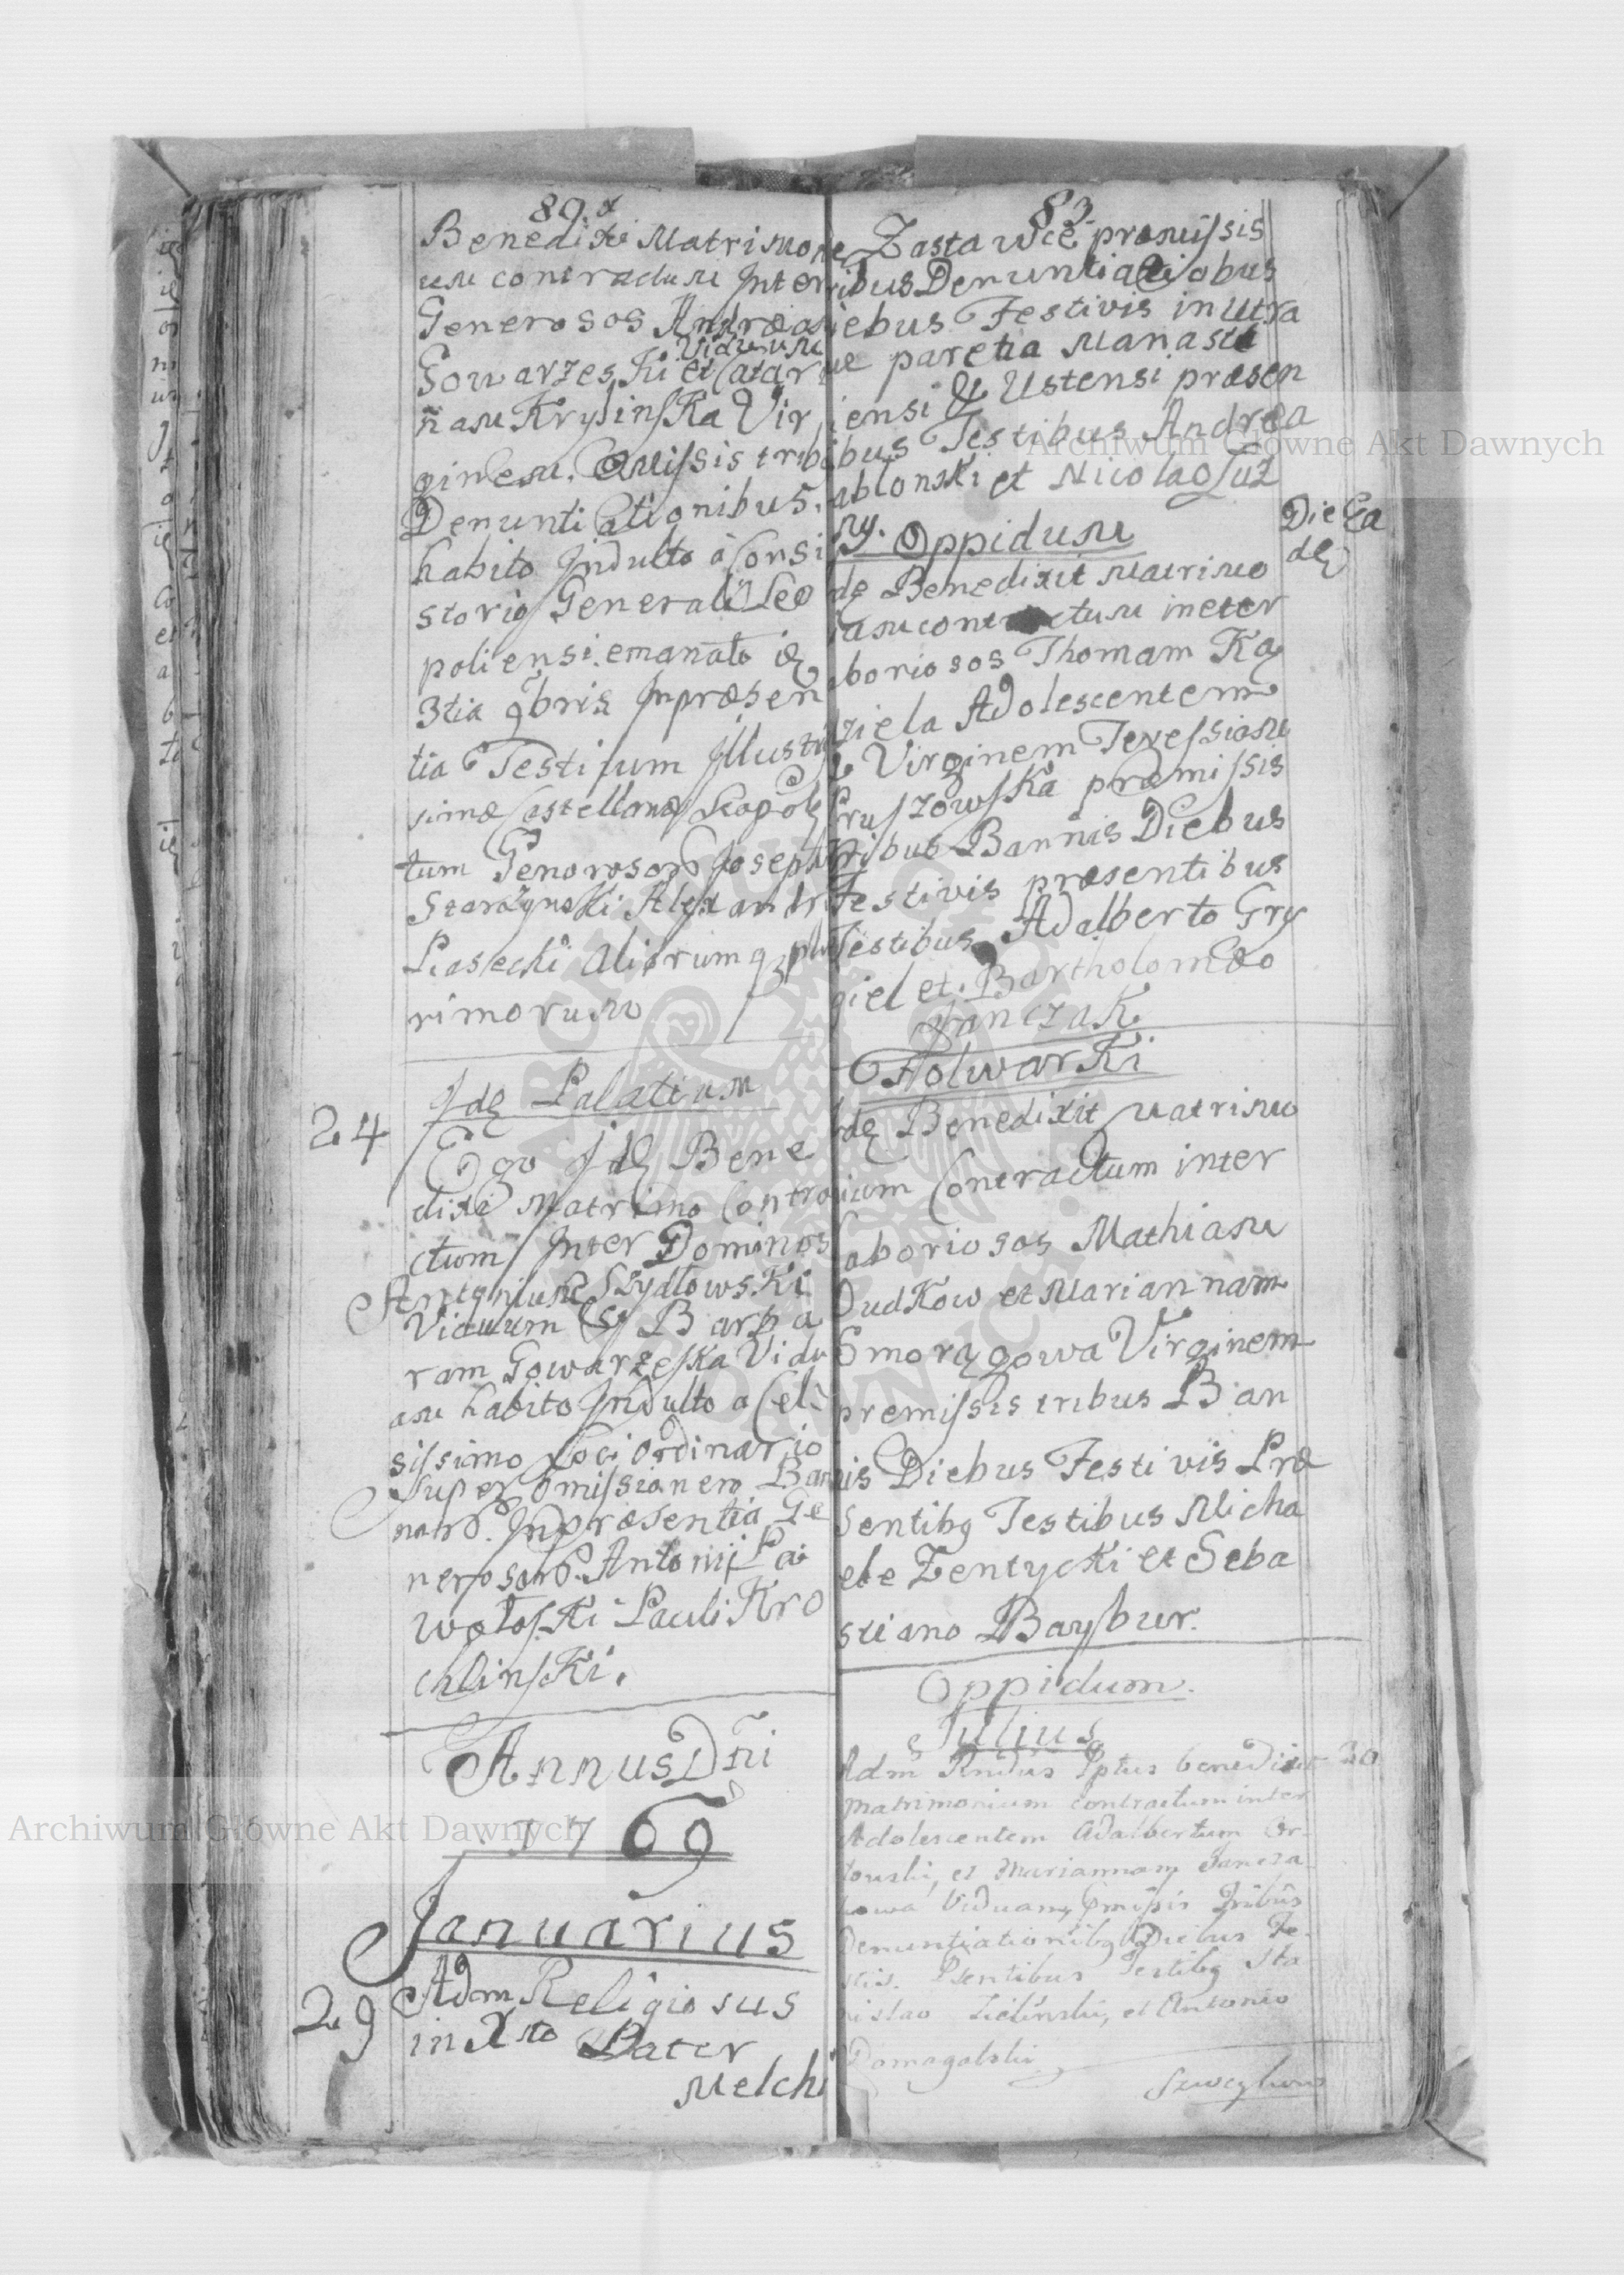 89.
Benedixi Matrimoni
um contractum Inter
Generosos Andræam
Viduum
Gowarzeski et Catar
ñam KrysinsKa Vir
ginem. Omissis tribus
Denuntiationibus.
habito Indulto à Consi
storio Generali Leo
poliensi emanato de
3tia 9bris Inpræsen
tia Testium Illustris
simæ Castellanæ
tum Generosorum Josephi
Starzynski Alexandri
Piasecki Aliorumq plu
rimorum
Ide Palatium
24
Ego Ide Bene
dixi Matrimo Contra
ctum Inter Dominos
Antonium SzydlowsKi
Viduum & Barba
ram GowarzesKa Vidu
am habito Indulto a Cel
sissimo Loci Ordinario
super omissionem Ban
norum. Inpræsentia Ge
nerosorum Antonij Pa
Pauli Kro
chlinsKi.
Annus Dñi
1769
Januarius
29
Adm Religiosus
in Xsto Pater
Melchi
83
Zastawce præmissis
ribus Denuntiationibus
iebus Festivis in utra
ue paretia Manaste
iensi & Ustensi præsen
ibus Testibus Andrea
ablonski et Nicolao Luz
ny. Oppidum
Die Ea
de
de Benedixit Matrimo
contractum inter
boriosos Thomam Ka
ziela Adolescentem
& Virginem Teressiam
PruszowsKa præmissis
ribus Bannis Diebus
Festivis præsentibus
Testibus Adalberto Gry
giel et Bartholomæo
JanczaK
FolwarKi
Ide Benedixit Matrimo
nium Contractum inter
aboriosos Mathiam
DudKow et Mariannam
Smoragowa Virginem
premissis tribus Ban
nis Diebus Festivis Præ
sentibq Testibus Micha
ele ZentycKi et Seba
stiano Baybur.
Oppidum.
Julius
20
Adm Rndus Pptus benedixit
matrimonium contractum inter
Adolescentem Adalbertum Or
towski, et Mariannam Jancza
kowa Viduam, Pmissis Tribus
Denuntiationibq Diebus Fe
stis. Psentibus Testibq Sta
nislao Zielinski, et Antonio
Domagalski
Archiwum Główne Akt Dawnych
Archiwum Główne Akt Dawnych